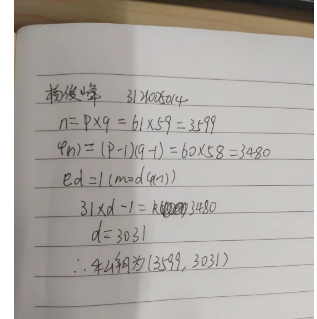 杨俊峰 3121005014
n=p×q=61×59=3599
φ(n)=(p-1)(q-1)=60×58=3480
ed=1(mod φ(n))
31×d-1=k 3480
d=3031
∴私钥为(3599, 3031)